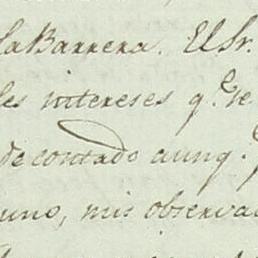 la Barrera. El Sr.
les intereses q.e se
de contado aunq.
uno, mis observa